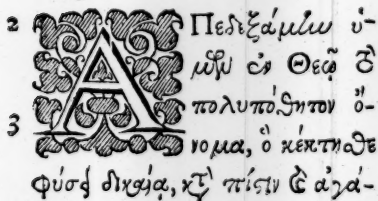 2 ΑΠεδεξάμίω ὑ-
μῶν ἐν Θεῷ τὸ
πολυπόθητον ὄ-
3 νομα, ὃ κέκτηθε
φύσει δικαίᾳ, κτ̀ πίστιν καὶ ἀγά-